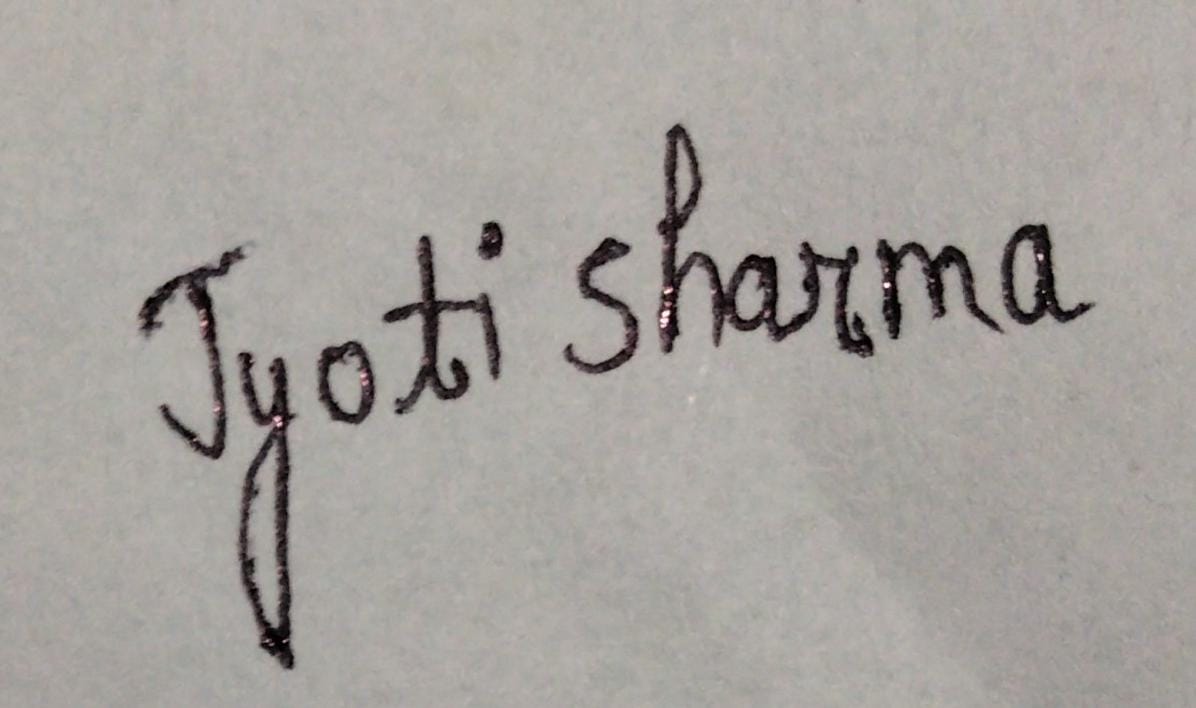 Jyoti sharma